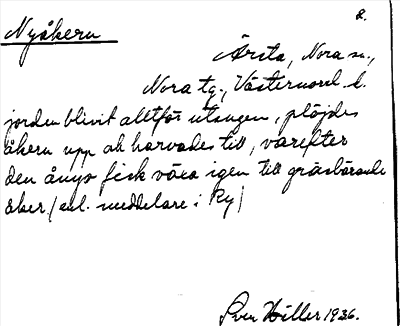 2.
Nyåkern
Ärsta, Nora sn.,
Nora tg., Västernorrl. l.
jorden blivit alltför utsugen, plöjdes
åkern upp och harvades till, varefter
den ånyo fick växa igen till gräsbärande
åker (enl. meddelare i Ry)
Sven Hiller 1936.